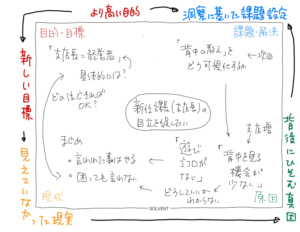 より高い目的
洞察に基いた課題設定
目的・目標
課題・解決
「支店長=経営者」
具体的には?
どの位できれば
OK?
「背中の教え」を
どう可視化するか
次回
新任課長(支店長)の
自立を促したい
まとめ
・言われた事はやる
・困っても言わない
「遊び
ゴコロが
ない」
支店増
「背中を見る
機会が
少ない」
どうしていいか
わからない
現状
原因
SOLVENT
新しい目標
見えていなかった現実
背後にひそむ真因